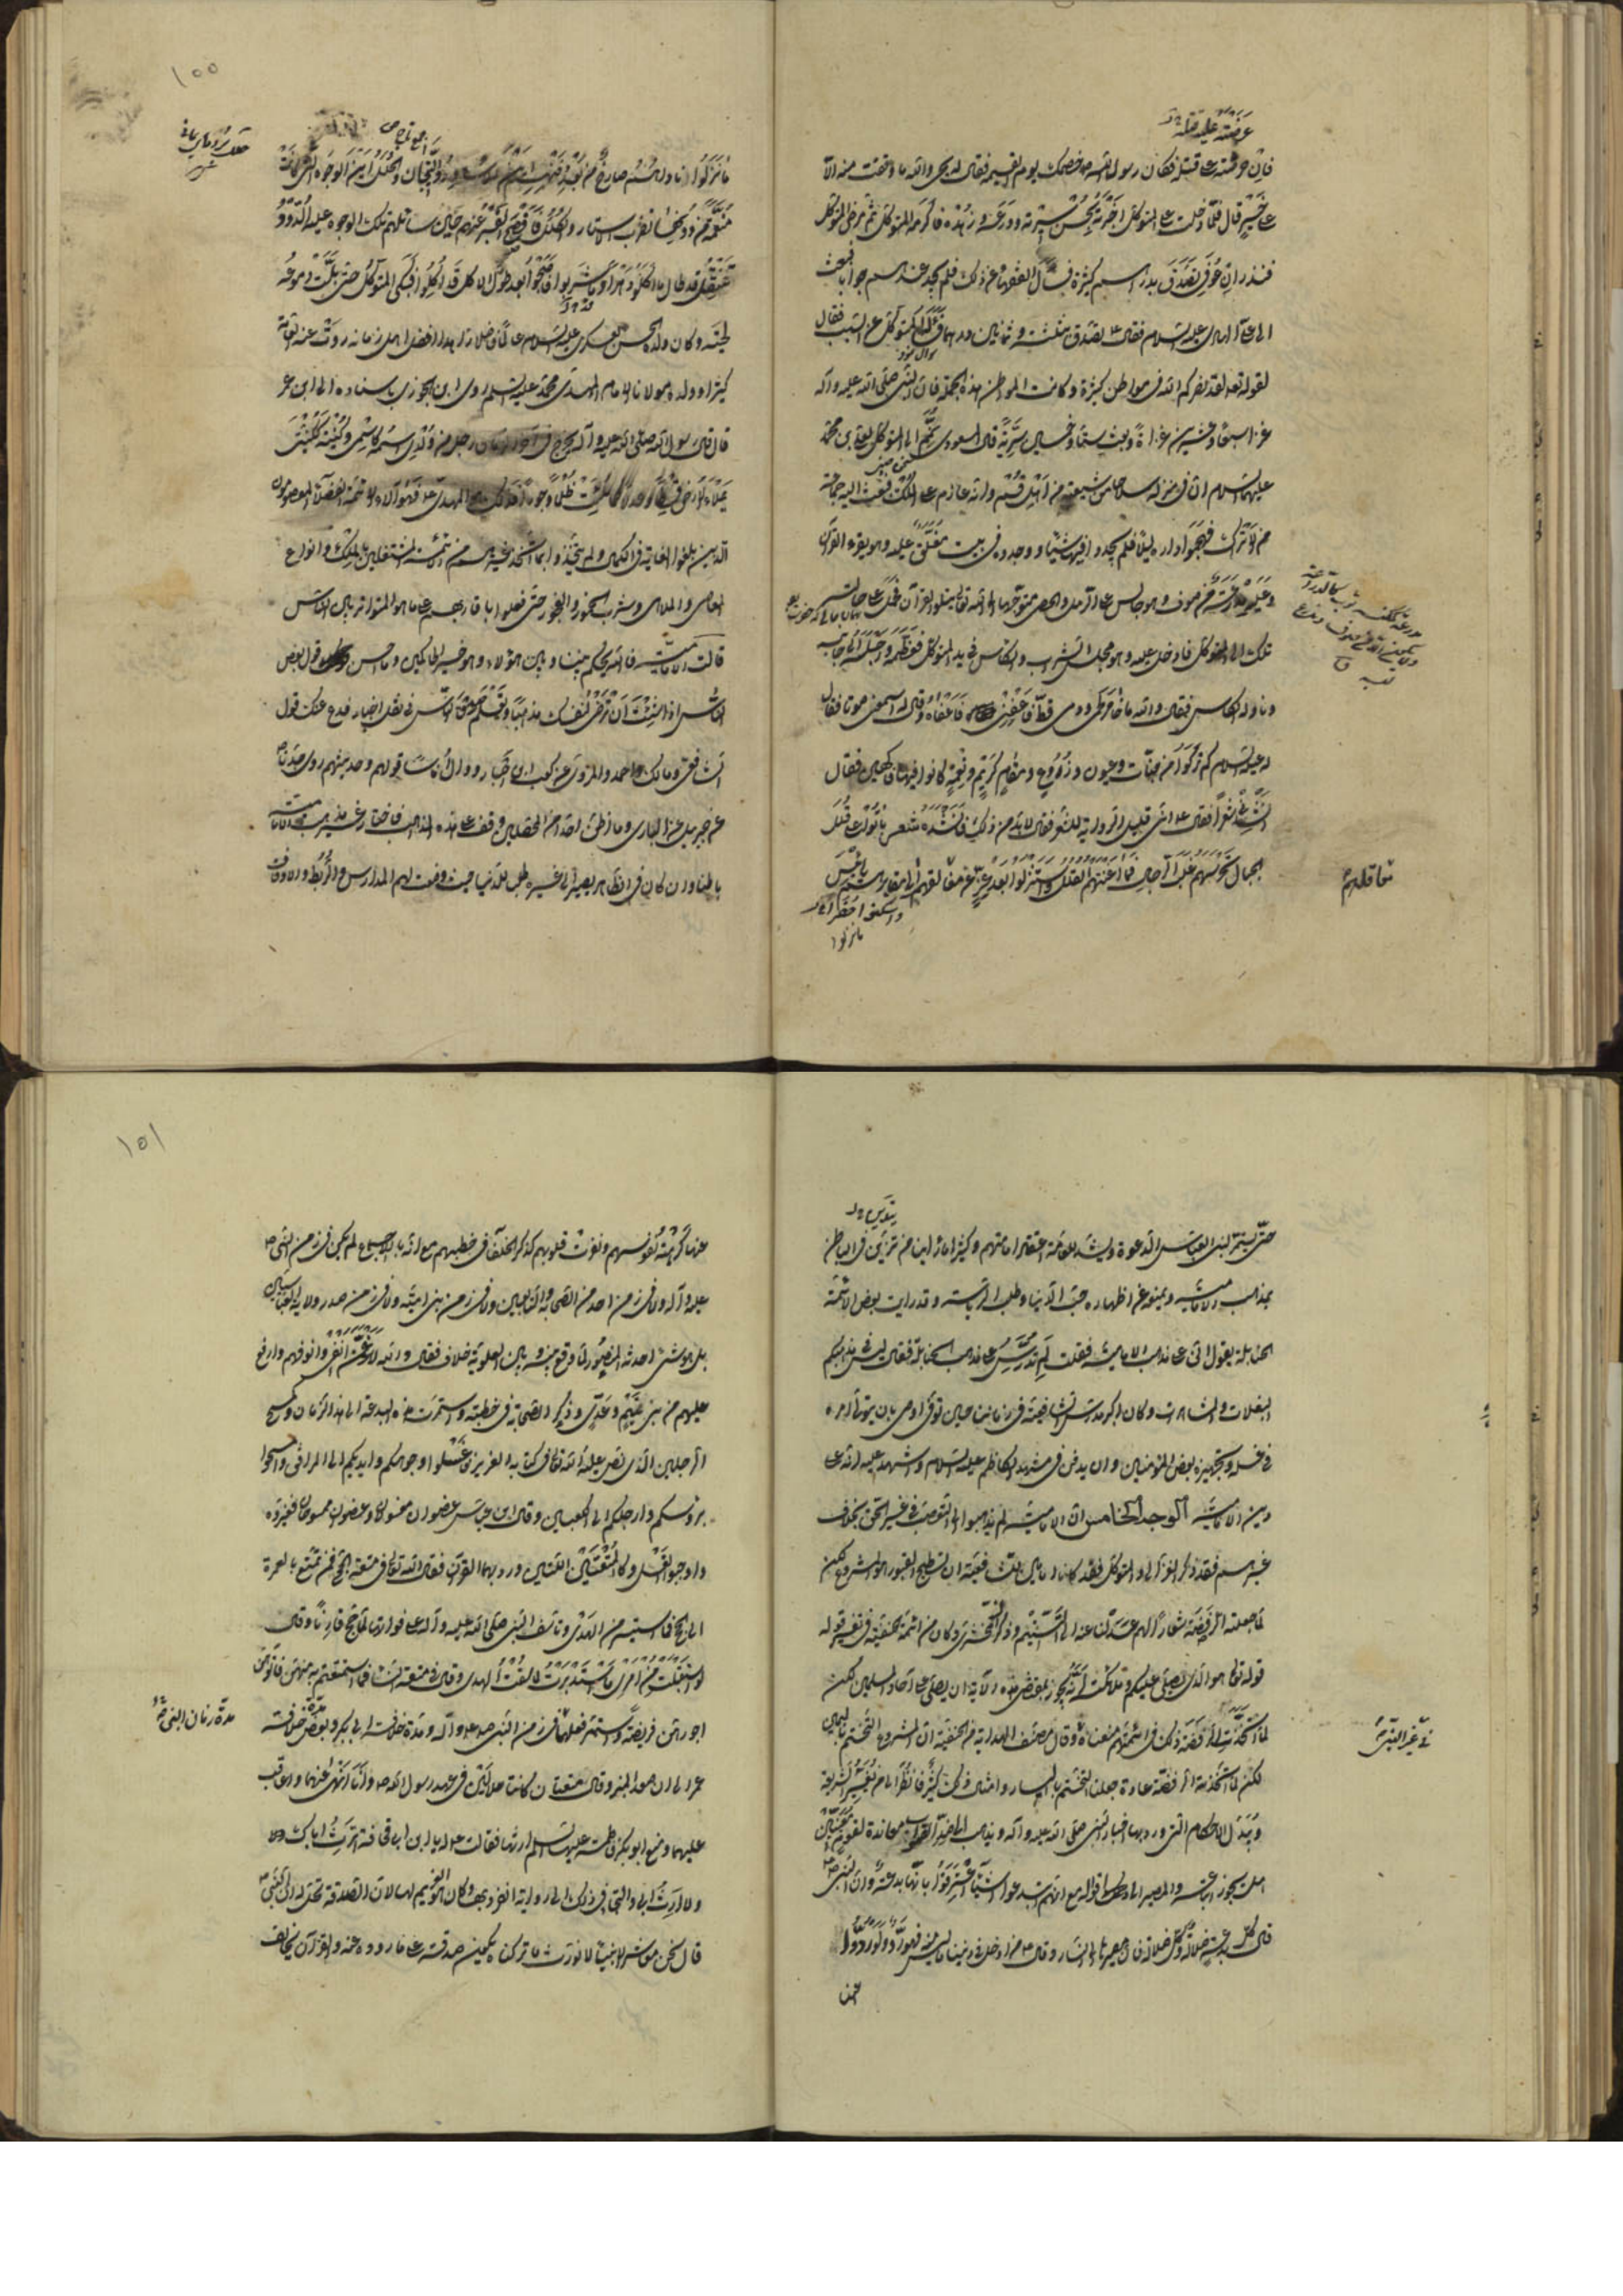 عرضته على قتله
فان حرضته على قتله كان رسول الله ص خصمك يوم القيمة فقال له يحيى والله ما وقعت منه الا
على خير قال فلما دخلت على المتوكل اخبرته بحسن سيرته وورعه وزهده فاكرمه المتوكل ثم مرض المتوكل
فنذر ان عوفي تصدق بدراهم كثيرة فسأل الفقهاء عن ذلك فلم يجد عندهم جوابا فبعث
الى على الهادى عليه السلام فقال تصدق بثلثة وثمانين درهما فسأله المتوكل عن السبب فقال
لقوله تعالى لقد نصركم الله فى مواطن كثيرة وكانت المواطن هذه الجملة فان النبى صلى الله عليه وآله
غزا سبعا وعشرين غزاة وبعث ستا وخمسين سرية قال المسعودى نم الى المتوكل بعلى بن محمد
عليهما السلام ان فى منزله سلاحا من شيعته من اهل قم وانه عازم على الملك فبعث اليه جماعة
من الاتراك فهجموا داره ليلا فلم يجدوا فيها شيئا ووجدوه فى بيت مغلق عليه وهو يقرء القرآن
وعليه مدرعة من صوف وهو جالس على الرمل والحصى متوجها الى الله تعالى يتلو القرآن فحمل على حالته
تلك الى المتوكل فادخل عليه وهو فى مجلس الشراب والكاس فى يد المتوكل فعظمه واجلسه الى جانبه
وناوله الكاس فقال والله ما خامر لحمى ودمى قط فاعفنى فاعفاه وقال له اسمعنى صوتا فقال
له عليه السلام كم تركوا من جنات وعيون وزروع ومقام كريم ونعمة كانوا فيها فاكهين فقال
انشدنى شعرا فقال ع انى قليل الرواية للشعر فقال لا بد من ذلك فانشده شعر باتوا على قلل
الجبال تحرسهم غلب الرجال فما اغنتهم القلل واستنزلوا بعد عز من معاقلهم الى مقابرهم يا بئس
واسكنوا حفرا
ما نزلوا
معاقلهم
١٠٠
ما نزلوا ناداهم صارخ من بعد دفنهم اين الاسرة والتيجان والحلل اين الوجوه التى كانت
منعمة من دونها تضرب الاستار والكلل فافصح القبر عنهم حين سائلهم تلك الوجوه عليها الدود
تنتقل قد طال ما اكلوا دهرا وما شربوا فاصبحوا بعد طول الاكل قد اكلوا فبكى المتوكل حتى بلت دموعه
لحيته وكان ولده الحسن العسكرى عليه السلام عالما فاضلا زاهدا افضل اهل زمانه روت عنه العامة
كثيرا وولده مولانا الامام المهدى محمد عليه السلم روى ابن الجوزى باسناده الى ابن عمر
قال قال رسول الله صلى الله عليه وآله يخرج فى آخر الزمان رجل من ولدى اسمه كاسمى وكنيته ككنيتى
يملأ الارض قسطا وعدلا كما ملئت ظلما وجورا فذلك هو المهدى ع فهؤلاء الائمة الفضلاء المعصومون
الذين بلغوا الغاية فى الكمال ولم يتخذوا ما اتخذ غيرهم من الائمة المشتغلين بالملك وانواع
المعاصى والملاهى وشرب الخمور والفجور حتى فعلوا باقاربهم على ما هو المتواتر بين الناس
قالت الامامية فالله يحكم بيننا وبين هؤلاء وهو خير الحاكمين وما احسن قول بعض
الناس اذا شئت ان ترضى لنفسك مذهبا وتعلم صدق الناس فى نقل اخبار فدع عنك قول
الشافعى ومالك واحمد والمروى عن كعب احبار ووال اناسا قولهم وحديثهم روى جدنا
عن جبريل عن البارى وما اظن احدا من المحصلين وقف على هذه المذاهب فاختار غير مذهب الامامية
باطنا وان كان فى الظاهر يصير الى غيره طلبا للدنيا حيث وضعت لهم المدارس والربط والاوقاف
حتى يستمر لبنى العباس الدعوة ويشيدوا للعامة اعتقاد امامتهم وكثيرا ما راينا من يتدين فى الباطن
بمذهب الامامية ويمنعه عن اظهاره حب الدنيا وطلب الرياسة وقد رايت بعض الائمة
الحنابلة يقول انى على مذهب الامامية فقلت لم تدرس على مذهب الحنابلة فقال ليس فى مذهبكم
البغلات والمشاهرات وكان اكبر مدرسى الشافعية فى زماننا حين توفى اوصى بان يتولى امره
فى غسله وتجهيزه بعض المؤمنين وان يدفن فى مشهد الكاظم عليه السلام واشهد عليه انه على
دين الامامية الوجه الخامس ان الامامية لم يذهبوا الى التعصب فى غير الحق بخلاف
غيرهم فقد ذكر الغزالى والمتوكل وكانا امامين للشافعية ان تسطيح القبور هو المشروع لكن
لما جعلته الرافضة شعارا لهم عدلنا عنه الى التسنيم وذكر الزمخشرى وكان من ائمة الحنفية فى تفسير قوله
قوله تعالى هو الذى يصلى عليكم وملائكته انه يجوز بمقتضى هذه الآية ان يصلى على آحاد المسلمين لكن
لما اتخذت الرافضة ذلك فى ائمتهم منعناه وقال مصنف الهداية من الحنفية ان المشروع التختم باليمين
لكن لما اتخذته الرافضة عادة جعلنا التختم باليسار وامثال ذلك كثير فانظر الى من يغير الشريعة
ويبدل الاحكام التى ورد بها اخبار النبى صلى الله عليه وآله ويذهب الى ضد الصواب معاندة لقوم معينين
هل يجوز اتباعه والمصير الى اقواله مع انهم ابتدعوا اشياء اعترفوا بانها بدعة وان النبى ص
قال كل بدعة ضلالة وكل ضلالة فان مصيرها الى النار وقال ص من ادخل فى ديننا ما ليس منه فهو رد ولو ردوا
عنها
١٠١
عنها كرهته نفوسهم ونفرت قلوبهم كذكر الخلفاء فى خطبهم مع انه بالاجماع لم يكن فى زمن النبى ص
عليه وآله ولا فى زمن احد من الصحابة والتابعين ولا فى زمن بنى امية ولا فى زمن صدر ولاية العباسيين
بل هو شئ احدثه المنصور لما وقع بينه وبين العلوية خلاف فقال والله لارغمن انفى وانوفهم وارفع
عليهم من بنى تيم وعدى وذكر الصحابة فى خطبته واستمرت هذه البدعة الى هذا الزمان وكمسح
الرجلين الذى نص عليه الله تعالى فى كتابه العزيز فقال فاغسلوا وجوهكم وايديكم الى المرافق وامسحوا
برؤسكم وارجلكم الى الكعبين وقال ابن عباس عضوان مغسولان وعضوان ممسوحان فغيروه
واوجبوا الغسل وكالمتعتين اللتين ورد بهما القرآن فقال الله تعالى فى متعة الحج فمن تمتع بالعمرة
الى الحج فما استيسر من الهدى وتاسف النبى صلى الله عليه وآله على فواتها لما حج قارنا وقال
لو استقبلت من امرى ما استدبرت لما سقت الهدى وقال فى متعة النساء فما استمتعتم به منهن فآتوهن
اجورهن فريضة واستمر فعلها فى زمن النبى ص عليه وآله ومدة خلافة ابى بكر وبعض خلافة
عمر الى ان صعد المنبر وقال متعتان كانتا محللتين فى عهد رسول الله ص وانا انهى عنهما واعاقب
عليهما ومنع ابو بكر فاطمة عليها السلم ارثها فقالت له يا ابن ابى قحافة اترث اباك
ولا ارث ابى والتجى فى ذلك الى رواية انفرد بها وكان هو الغريم لها لان الصدقة تحل له الى النبى ص
قال نحن معاشر الانبياء لا نورث ما تركناه يكون صدقة على ما رووه عنه والقرآن يخالف
مدة زمان النبى ص